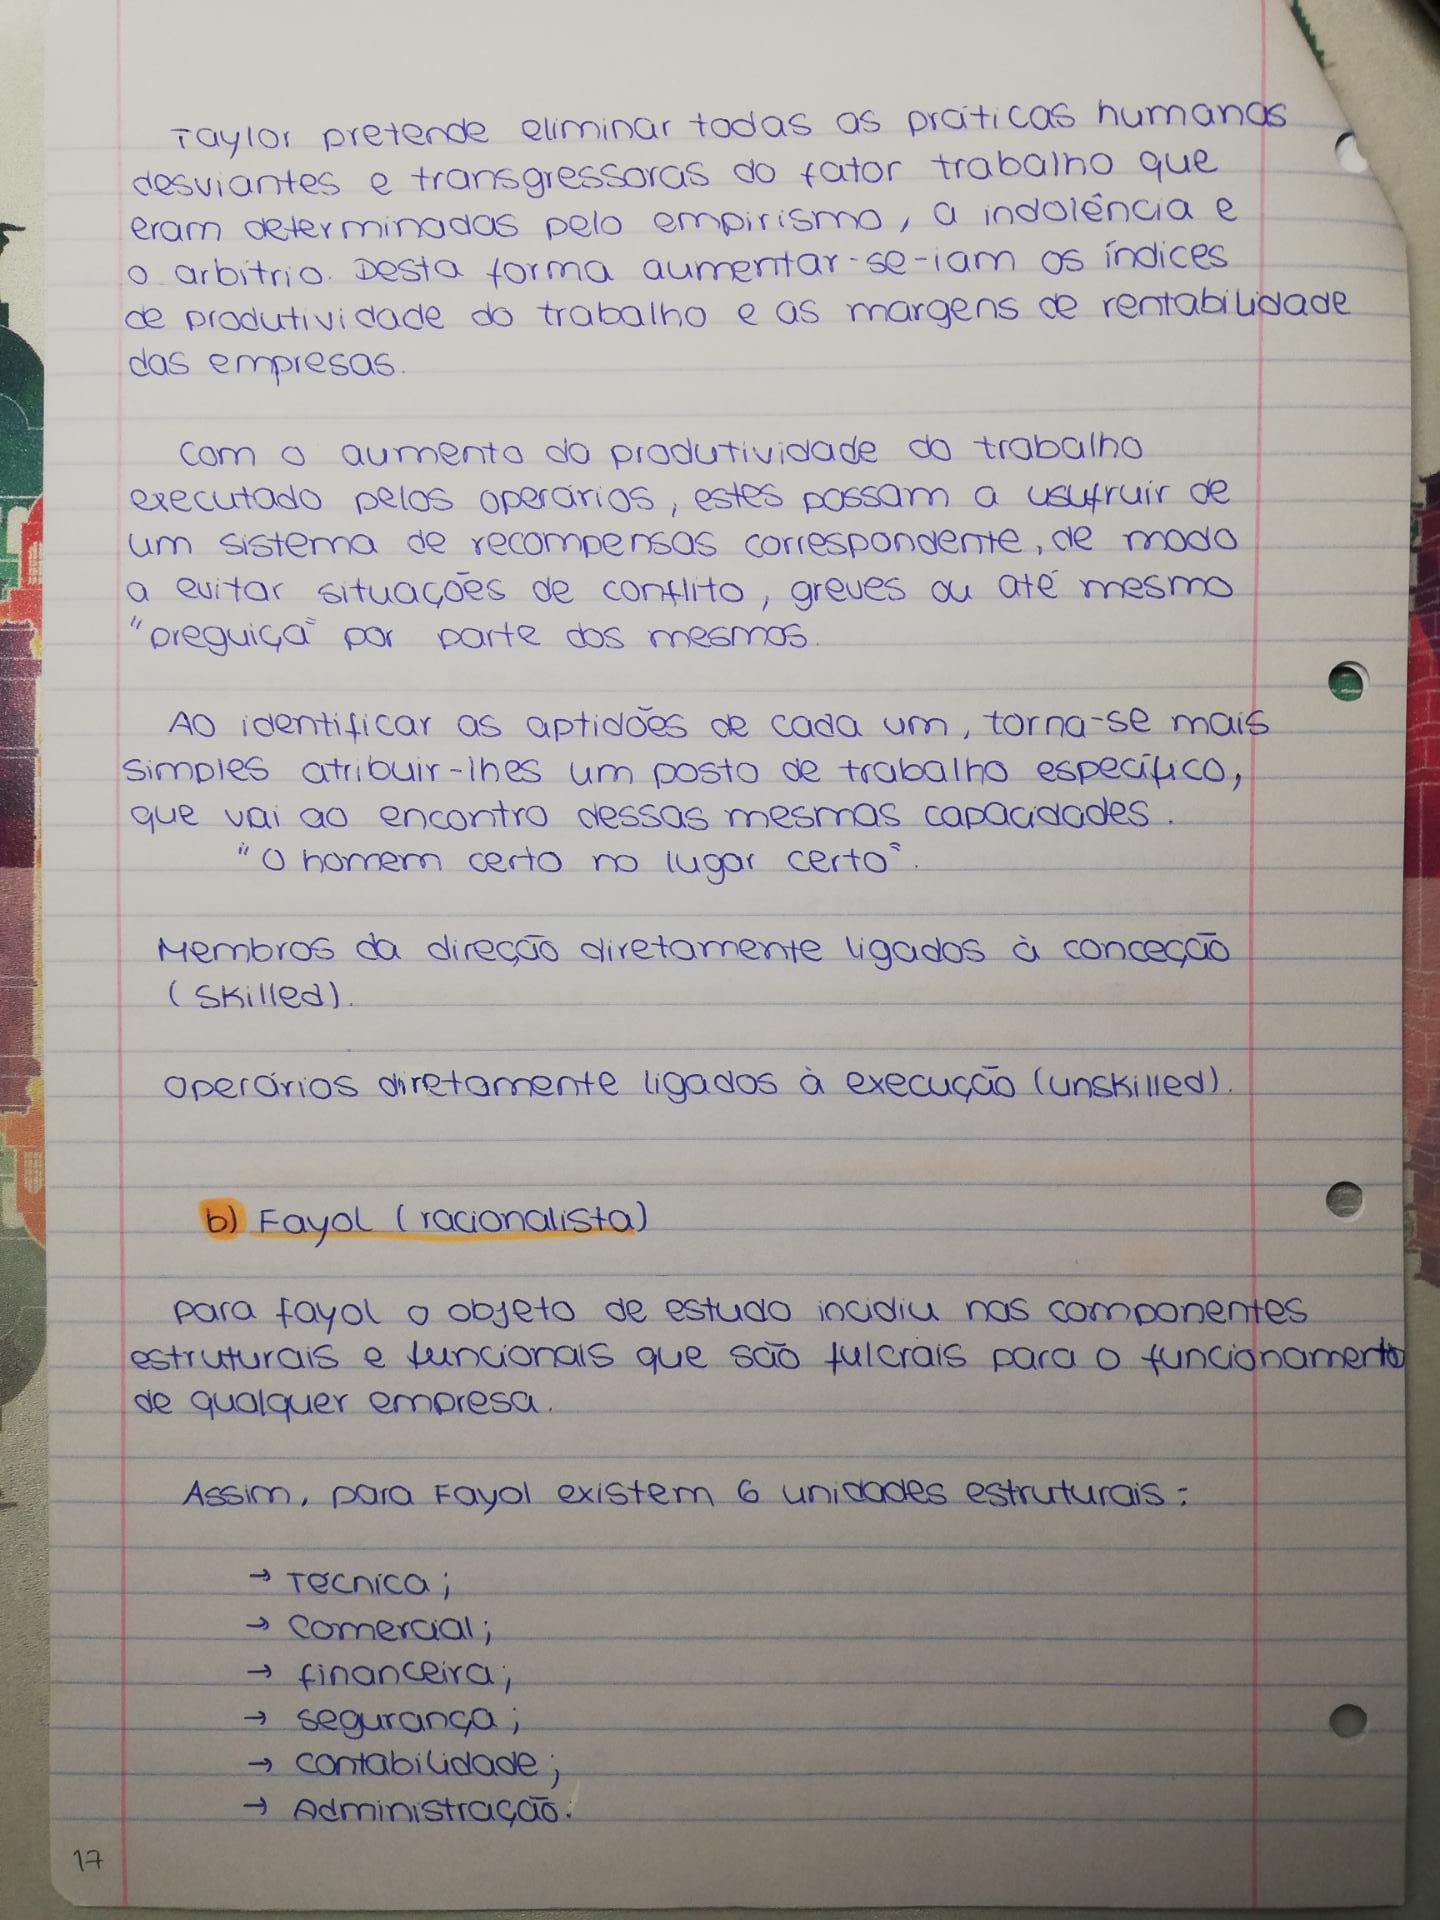 Taylor pretende eliminar todas as práticas humanas
desviantes e transgressoras do fator trabalho que
eram determinadas pelo empirismo, a indolência e
o arbítrio. Desta forma aumentar-se-iam os índices
de produtividade do trabalho e as margens de rentabilidade
das empresas.
Com o aumento da produtividade do trabalho
executado pelos operários, estes passam a usufruir de
um sistema de recompensas correspondente, de modo
a evitar situações de conflito, greves ou até mesmo
"preguiça" por parte dos mesmos.
Ao identificar as aptidões de cada um, torna-se mais
simples atribuir-lhes um posto de trabalho específico,
que vai ao encontro dessas mesmas capacidades.
"O homem certo no lugar certo".
Membros da direção diretamente ligados à conceção
(skilled).
Operários diretamente ligados à execução (unskilled).
b) Fayol (racionalista)
Para fayol o objeto de estudo incidiu nas componentes
estruturais e funcionais que são fulcrais para o funcionamento
de qualquer empresa.
Assim, para Fayol existem 6 unidades estruturais:
→ Técnica;
→ Comercial;
→ financeira;
→ segurança;
→ Contabilidade;
→ Administração.
17